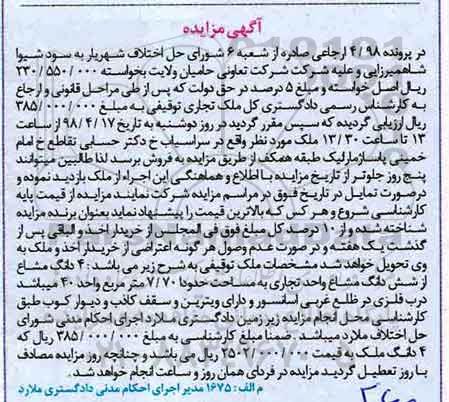 آگهی مزایده
در پرونده ۴/۹۸ ارجاعی صادره از شعبه ۶ شورای حل اختلاف شهریار به سود شیوا
شاهمیرزایی و علیه شرکت شرکت تعاونی حامیان ولایت بخواسته ۲۳۰/۵۵۰/۰۰۰
ریال اصل خواسته و مبلغ ۵ درصد در حق دولت که پس از طی مراحل قانونی و ارجاع
به کارشناس رسمی دادگستری کل ملک تجاری توقیفی به مبلغ ۳۸۵/۰۰۰/۰۰۰
ریال ارزیابی گردیده که سپس مقرر گردید در روز دوشنبه به تاریخ ۹۸/۴/۱۷ از ساعت
۱۳ تا ساعت ۱۳/۳۰ ملک مورد نظر واقع در سراسیاب خ دکتر حسابی تقاطع خ امام
خمینی پاساژ مارلیک طبقه همکف از طریق مزایده به فروش برسد لذا طالبین میتوانند
پنج روز جلوتر از تاریخ مزایده با اطلاع و هماهنگی این اجراء از ملک بازدید نموده و
درصورت تمایل در تاریخ فوق در مراسم مزایده شرکت نمایند مزایده از قیمت پایه
کارشناسی شروع و هر کس که بالاترین قیمت را پیشنهاد نماید بعنوان برنده مزایده
شناخته شده و از ۱۰ درصد کل مبلغ فوق فی المجلس از خریدار اخذ و الباقی پس از
گذشت یک هفته و در صورت عدم وصول هر گونه اعتراضی از خریدار اخذ و ملک به
وی تحویل خواهد شد مشخصات ملک توقیفی به شرح زیر می باشد: ۴ دانگ مشاع
از شش دانگ مشاع واحد تجاری به مساحت حدودا ۷/۷۰ متر مربع واحد ۴۰ میباشد
درب فلزی در ظلع غربی آسانسور و دارای ویترین و سقف کاذب و دیوار کوب طبق
کارشناسی محل انجام مزایده زیر زمین دادگستری ملارد اجرای احکام مدنی شورای
حل اختلاف ملارد میباشد . ضمنا مبلغ کارشناسی به مبلغ ۳۸۵/۰۰۰/۰۰۰ ریال که
۴ دانگ ملک به قیمت ریال می باشد و چنانچه روز مزایده مصادف
با روز تعطیل گردید مزایده در فردای همان روز و ساعت انجام خواهد شد .
م الف : ۱۶۷۵ مدیر اجرای احکام مدنی دادگستری ملارد